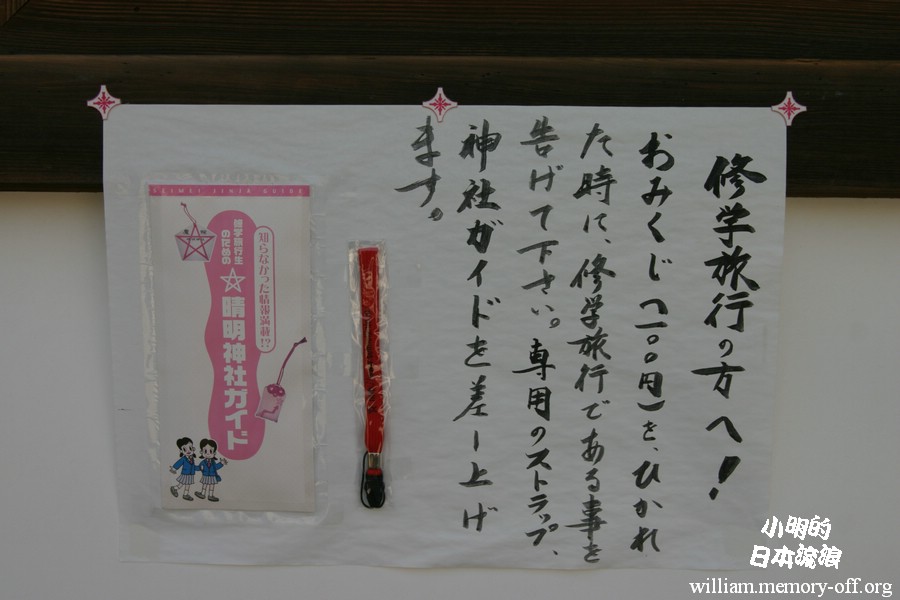 修学旅行の方へ!
おみくじ(一〇〇円)を、ひかれ
た時に、修学旅行である事を
告げて下さい。専用のストラップ、
神社ガイドを差し上げ
ます。
SEIMEI JINJA GUIDE
知らなかった情報満載!?
修学旅行生
のための
晴明神社ガイド
小明的
日本流浪
william.memory-off.org